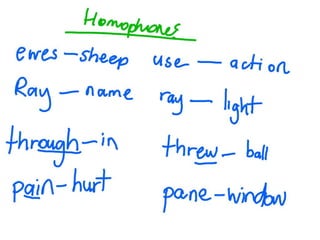 Homophones
ewes – sheep use – action
Ray – name ray – light
through – in threw – ball
pain – hurt pane – window